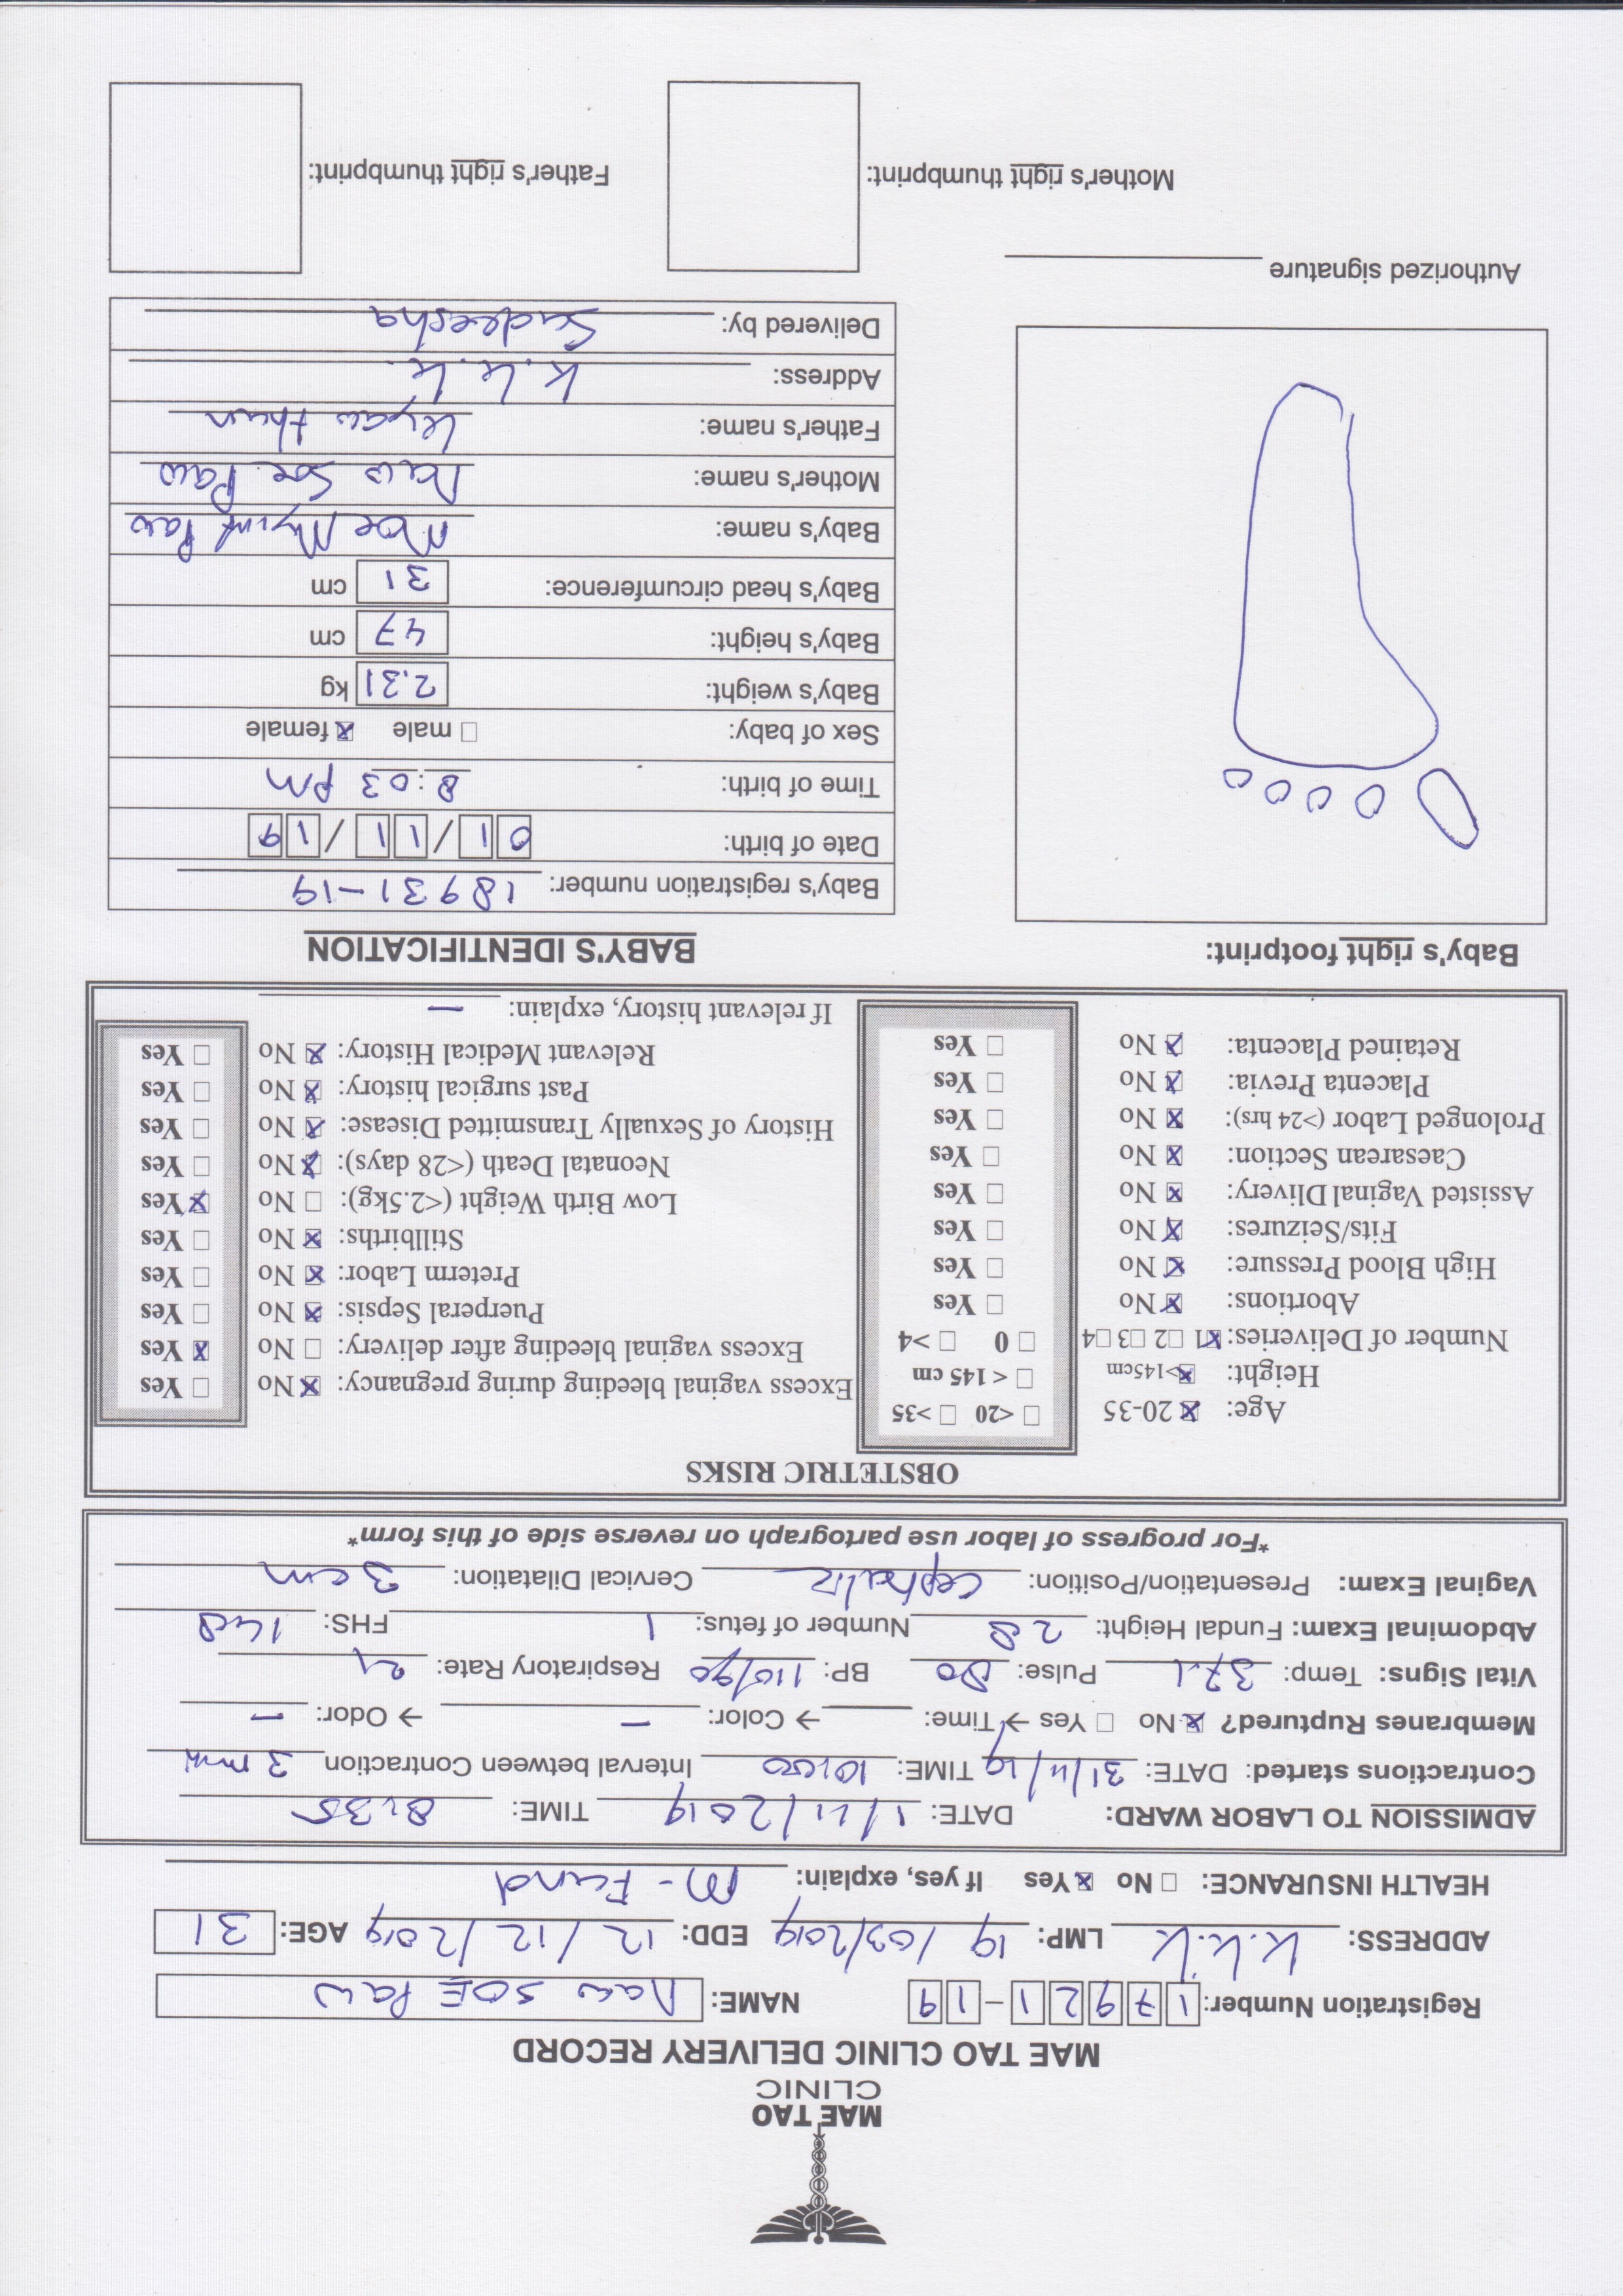 MAE TAO
CLINIC
MAE TAO CLINIC DELIVERY RECORD
Registration Number: 17921-19 NAME: Naw SOE Paw
ADDRESS: K.K.K LMP: 19/03/2019 EDD: 12/12/2019 AGE: 31
HEALTH INSURANCE: ☐ No ☒ Yes If yes, explain: M-Fund
ADMISSION TO LABOR WARD: DATE: 1/11/2019 TIME: 8:35
Contractions started: DATE: 31/11/19 TIME: 10:00 Interval between Contraction 3 min
Membranes Ruptured? ☒ No ☐ Yes → Time: → Color: – → Odor: –
Vital Signs: Temp: 37.1 Pulse: 80 BP: 110/70 Respiratory Rate: 21
Abdominal Exam: Fundal Height: 28 Number of fetus: 1 FHS: 148
Vaginal Exam: Presentation/Position: Cephalic Cervical Dilatation: 3 cm
*For progress of labor use partograph on reverse side of this form*
OBSTETRIC RISKS
Age: ☒ 20-35 ☐ <20 ☐ >35
Height: ☒ >145cm ☐ < 145 cm
Number of Deliveries: ☒1 ☐2 ☐3 ☐4 ☐ 0 ☐ >4
Abortions: ☒ No ☐ Yes
High Blood Pressure: ☒ No ☐ Yes
Fits/Seizures: ☒ No ☐ Yes
Assisted Vaginal Dlivery: ☒ No ☐ Yes
Caesarean Section: ☒ No ☐ Yes
Prolonged Labor (>24 hrs): ☒ No ☐ Yes
Placenta Previa: ☒ No ☐ Yes
Retained Placenta: ☒ No ☐ Yes
Excess vaginal bleeding during pregnancy: ☒ No ☐ Yes
Excess vaginal bleeding after delivery: ☐ No ☒ Yes
Puerperal Sepsis: ☒ No ☐ Yes
Preterm Labor: ☒ No ☐ Yes
Stillbirths: ☒ No ☐ Yes
Low Birth Weight (<2.5kg): ☐ No ☒ Yes
Neonatal Death (<28 days): ☒ No ☐ Yes
History of Sexually Transmitted Disease: ☒ No ☐ Yes
Past surgical history: ☒ No ☐ Yes
Relevant Medical History: ☒ No ☐ Yes
If relevant history, explain: –
Baby's right footprint:
BABY'S IDENTIFICATION
Baby's registration number: 18931-19
Date of birth: 01/11/19
Time of birth: 8:03 pm
Sex of baby: ☐ male ☒ female
Baby's weight: 2.31 kg
Baby's height: 47 cm
Baby's head circumference: 31 cm
Baby's name: Moe Myint Paw
Mother's name: Naw Soe Paw
Father's name: Kyaw thun
Address: K.K.K.
Delivered by: Sudeesha
Authorized signature
Mother's right thumbprint:
Father's right thumbprint: